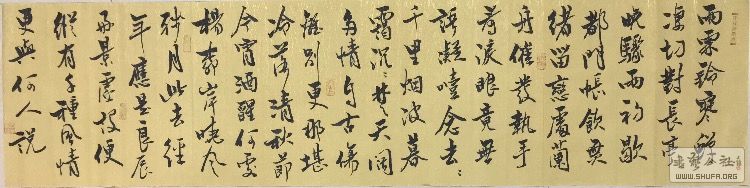 雨霖鈴寒蟬
凄切對長亭
晚驟雨初歇
都門帳飲無
緒留戀處蘭
舟催發執手
看淚眼竟無
語凝噎念去々
千里烟波暮
靄沉々楚天闊
多情自古傷
離別更那堪
冷落清秋節
今宵酒醒何處
楊柳岸曉風
殘月此去經
年應是良辰
好景虛設便
縱有千種風情
更與何人說
WWW.SHUFA.ORG